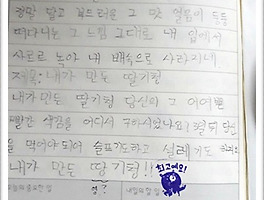 정말 달고 부드러운 그 맛 얼음이 동동
떠다니는 그 느낌 그대로 내 입에서
사르르 녹아 내 배속으로 사라지네
내가 만든 딸기청
내가 만든 딸기청 당신의 그 어여쁜
빨간 색깔을 어디서 구하시었나요!
을 먹어야 되어 슬프기도하고 설레기도
내가 만든 딸기청!!
최고예요!